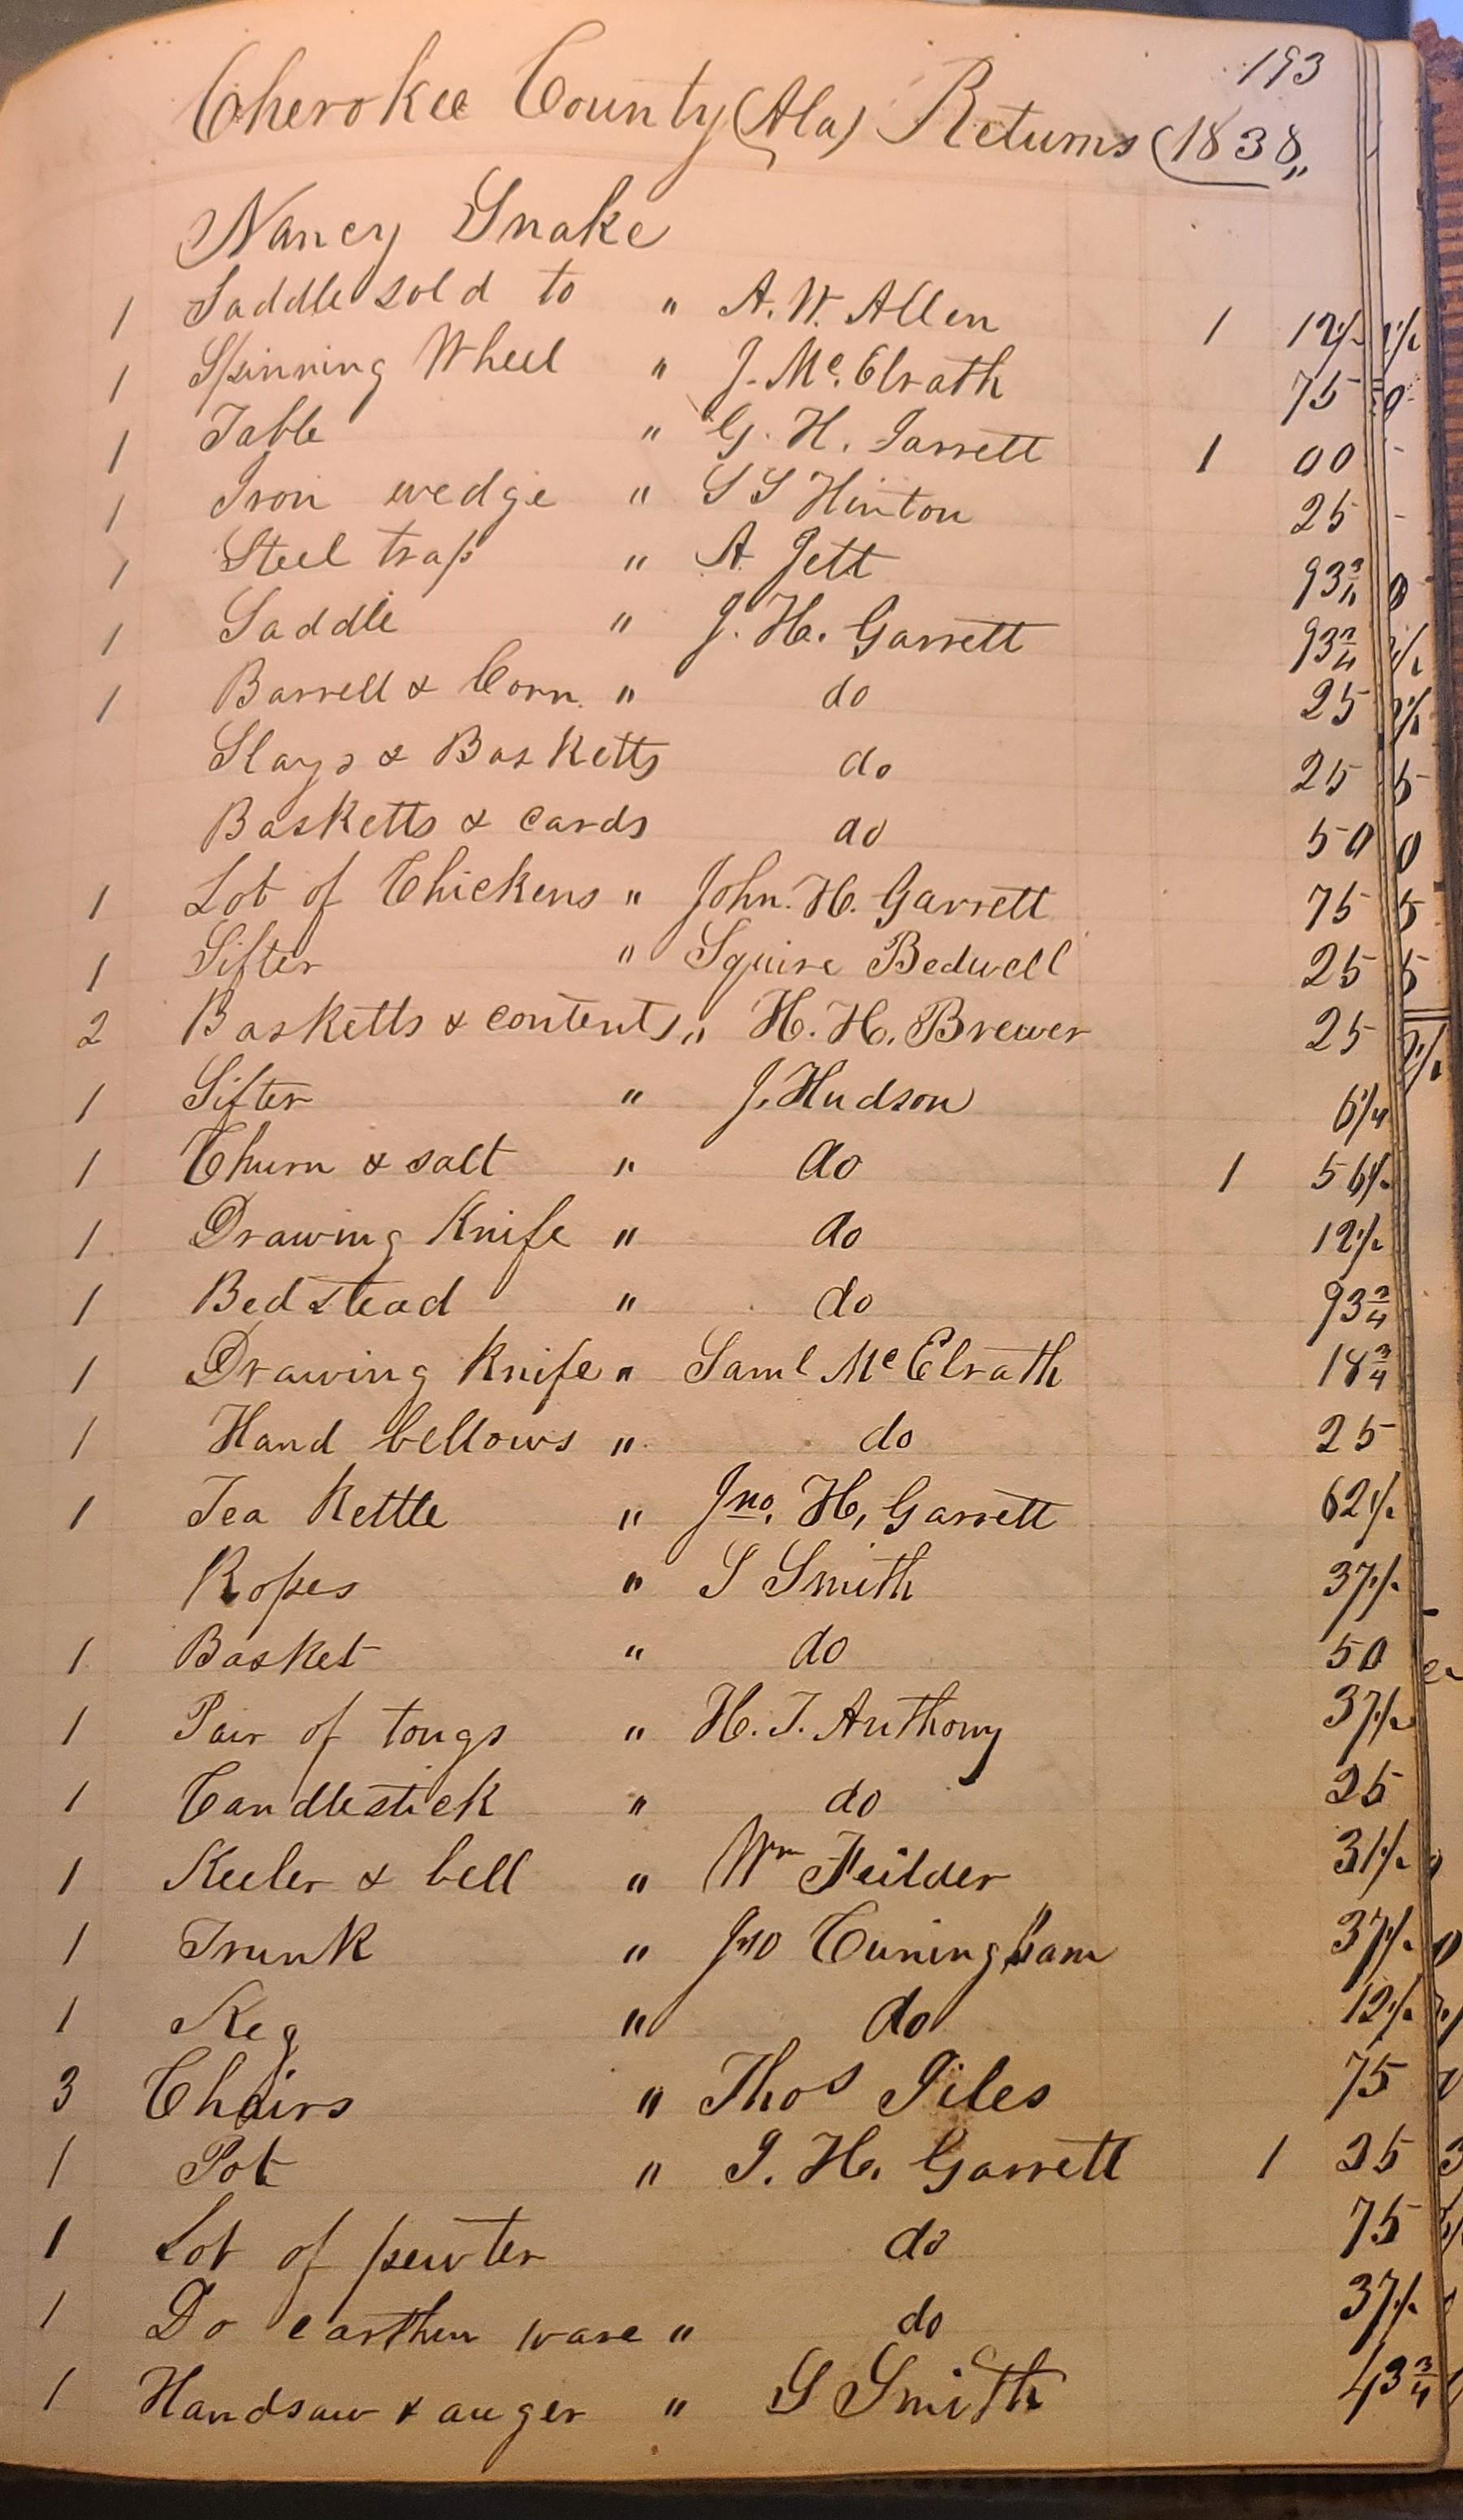 193
Cherokee County (Ala) Returns (1838,,
Nancy Snake
1 Saddle sold to " A. W. Allen 1 12 1/2
1 Spinning Wheel " J. Mc. Elrath 75
1 Table " G. H. Garrett 1 00
1 Iron wedge " S S Hinton 25
1 Steel trap " A Jett 93 3/4
1 Saddle " J. H. Garrett 93 3/4
1 Barrell & Corn " do 25
Slays & Basketts do 25
Basketts & cards do 50
1 Lot of Chickens " John. H. Garrett 75
1 Sifter " Squire Bedwell 25
2 Basketts & contents " H. H. Brewer 25
1 Sifter " J. Hudson 6 1/4
1 Churn & salt " do 1 56 1/4
1 Drawing Knife " do 12 1/2
1 Bedstead " do 93 3/4
1 Drawing Knife " Saml McElrath 18 3/4
1 Hand bellows " do 25
1 Tea Kettle " Jno. H, Garrett 62 1/2
Ropes " S Smith 37 1/2
1 Basket " do 50
1 Pair of tongs " H. T. Anthony 37 1/2
1 Candlestick " do 25
1 Keeler & bell " Wm Feilder 31 1/4
1 Trunk " Jno Cuningham 37 1/2
1 Keg " do 12 1/2
3 Chairs " Thos Giles 75
1 Pot " J. H. Garrett 1 25
1 Lot of pewter do 75
1 Do earthen ware " do 37 1/2
1 Handsaw & auger " S Smith 43 3/4